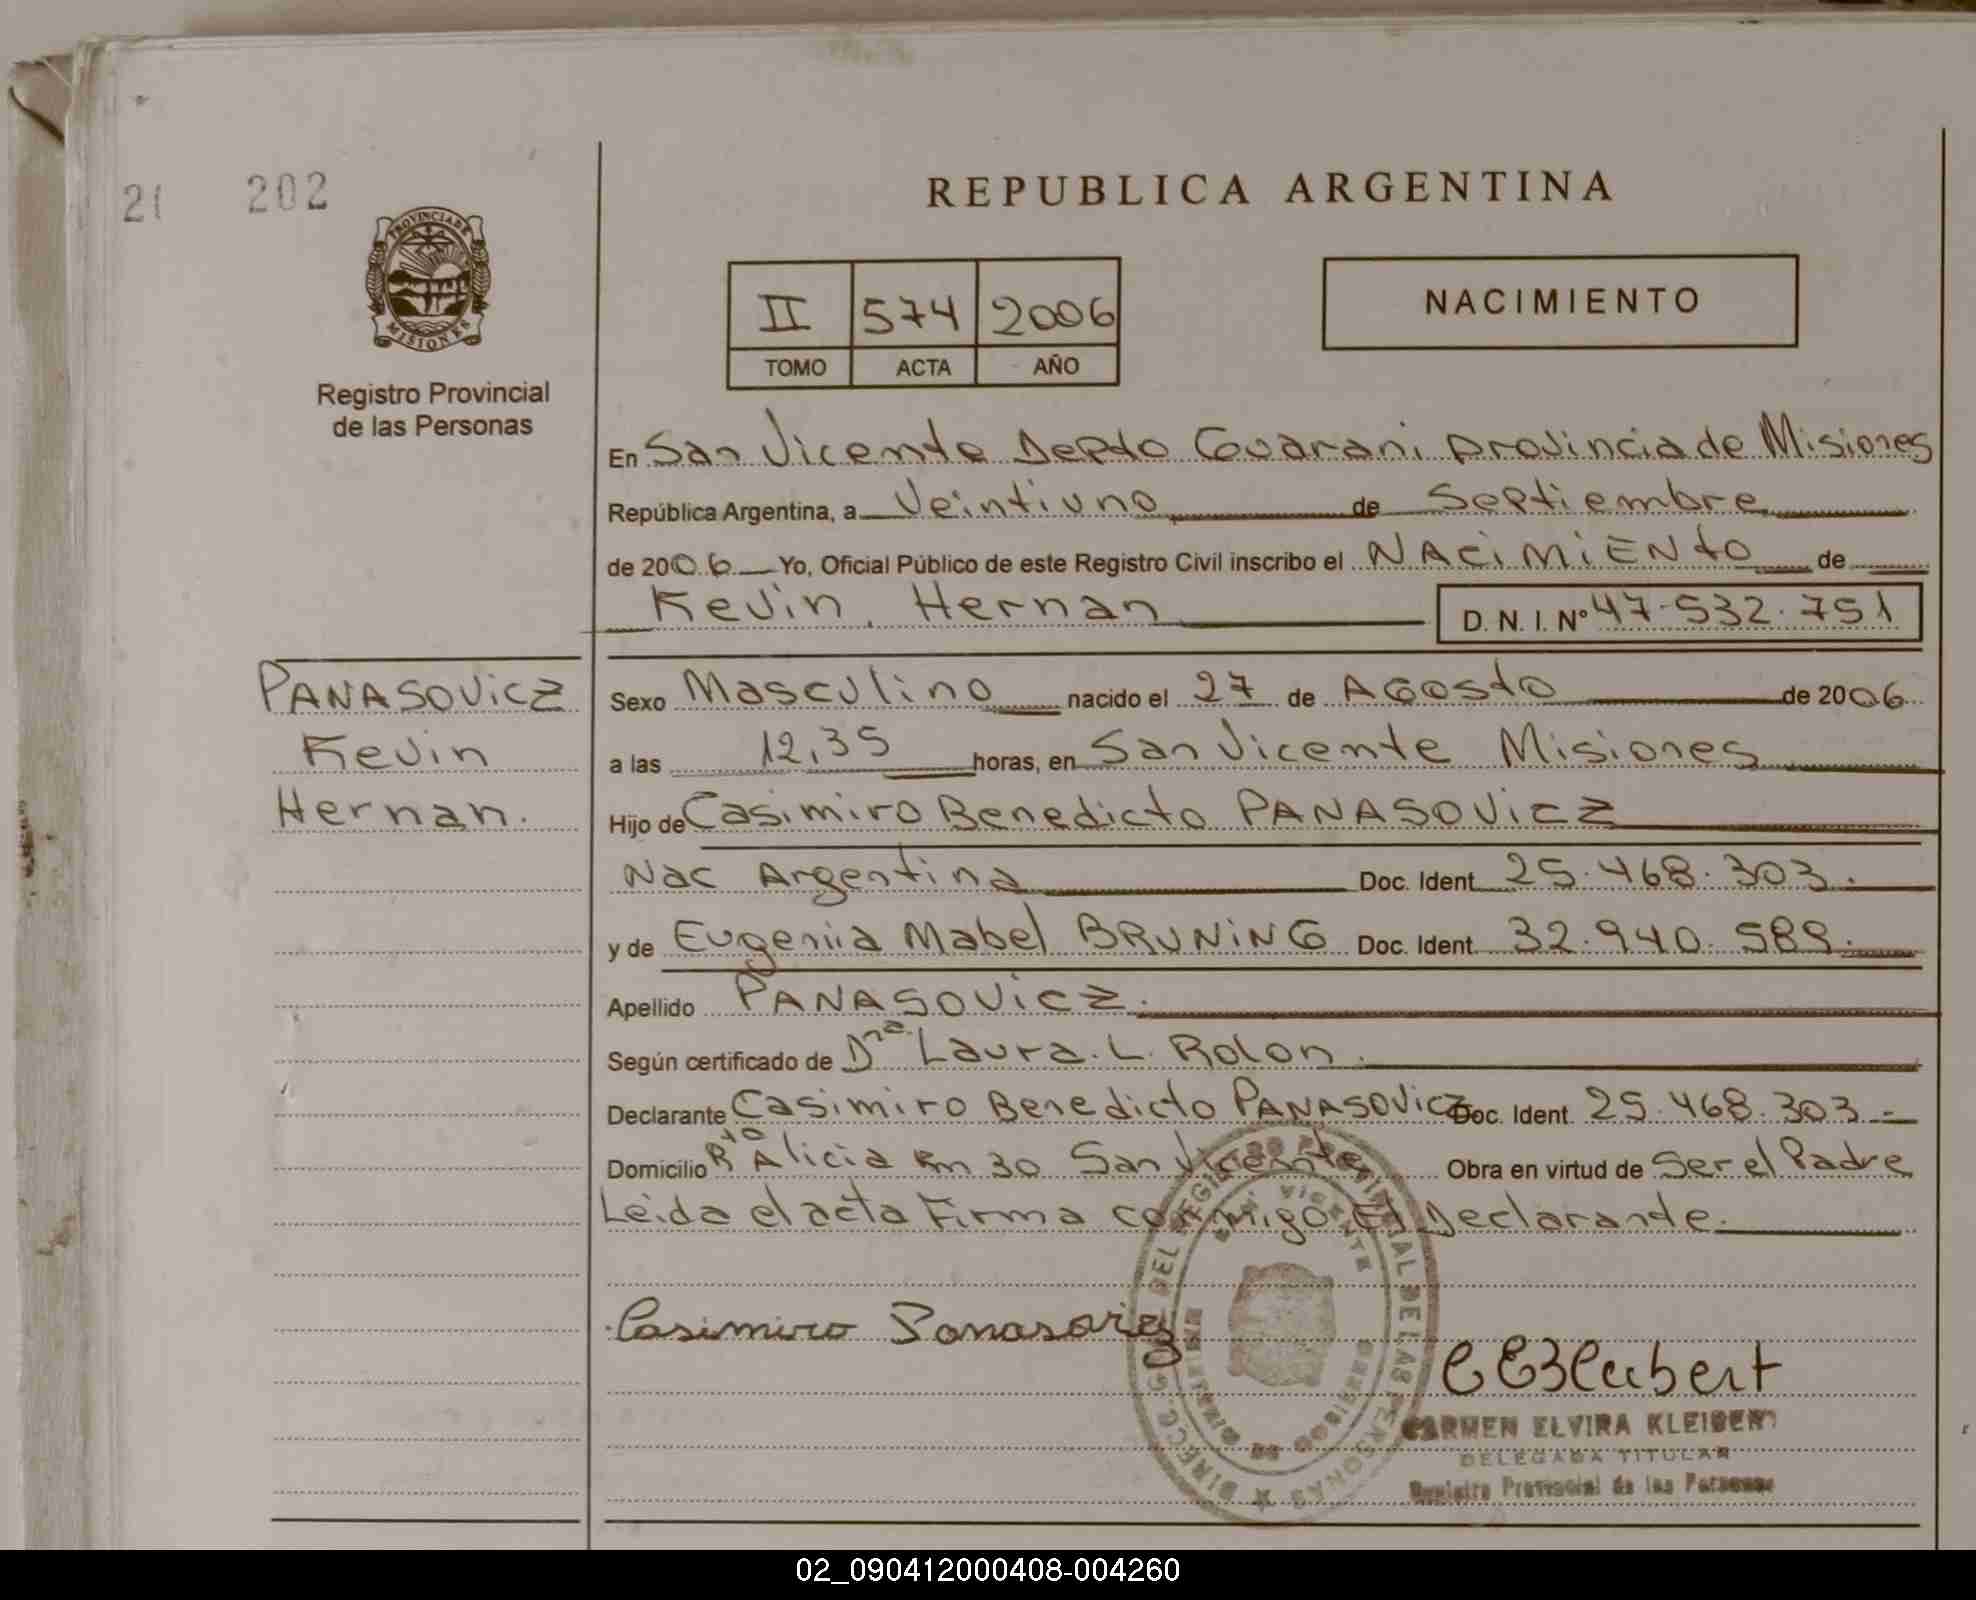 21 202
PROVINCIA DE
MISIONES
Registro Provincial
de las Personas
REPUBLICA ARGENTINA
II 574 2006
TOMO ACTA AÑO
NACIMIENTO
En San Vicente Depto Guarani provincia de Misiones
República Argentina, a Veintiuno de Septiembre
de 2006 Yo, Oficial Público de este Registro Civil inscribo el NACIMIENTO de
Kevin Hernan D. N. I. Nº 47.532.751
PANASOVICZ
Kevin
Hernan.
Sexo Masculino nacido el 27 de AGosto de 2006
a las 12,35 horas, en San Vicente Misiones
Hijo de Casimiro Benedicto PANASOVICZ
Nac Argentina Doc. Ident. 25.468.303.
y de Eugeniia Mabel BRUNING Doc. Ident. 32.940.589.
Apellido PANASOVICZ.
Según certificado de Dra Laura. L. Rolon.
Declarante Casimiro Benedicto PANASOVICZ Doc. Ident. 25.468.303.-
Domicilio Rto Alicia Km 30 San Vicente Obra en virtud de Ser el Padre
Leida el acta Firma conmigo El Declarante.
Casimiro
DIRECC. GRAL. DEL REGISTRO PROVINCIAL DE LAS PERSONAS
SAN VICENTE
MISIONES
CARMEN ELVIRA KLEIBERT
DELEGADA TITULAR
Registro Provincial de las Personas
02_090412000408-004260